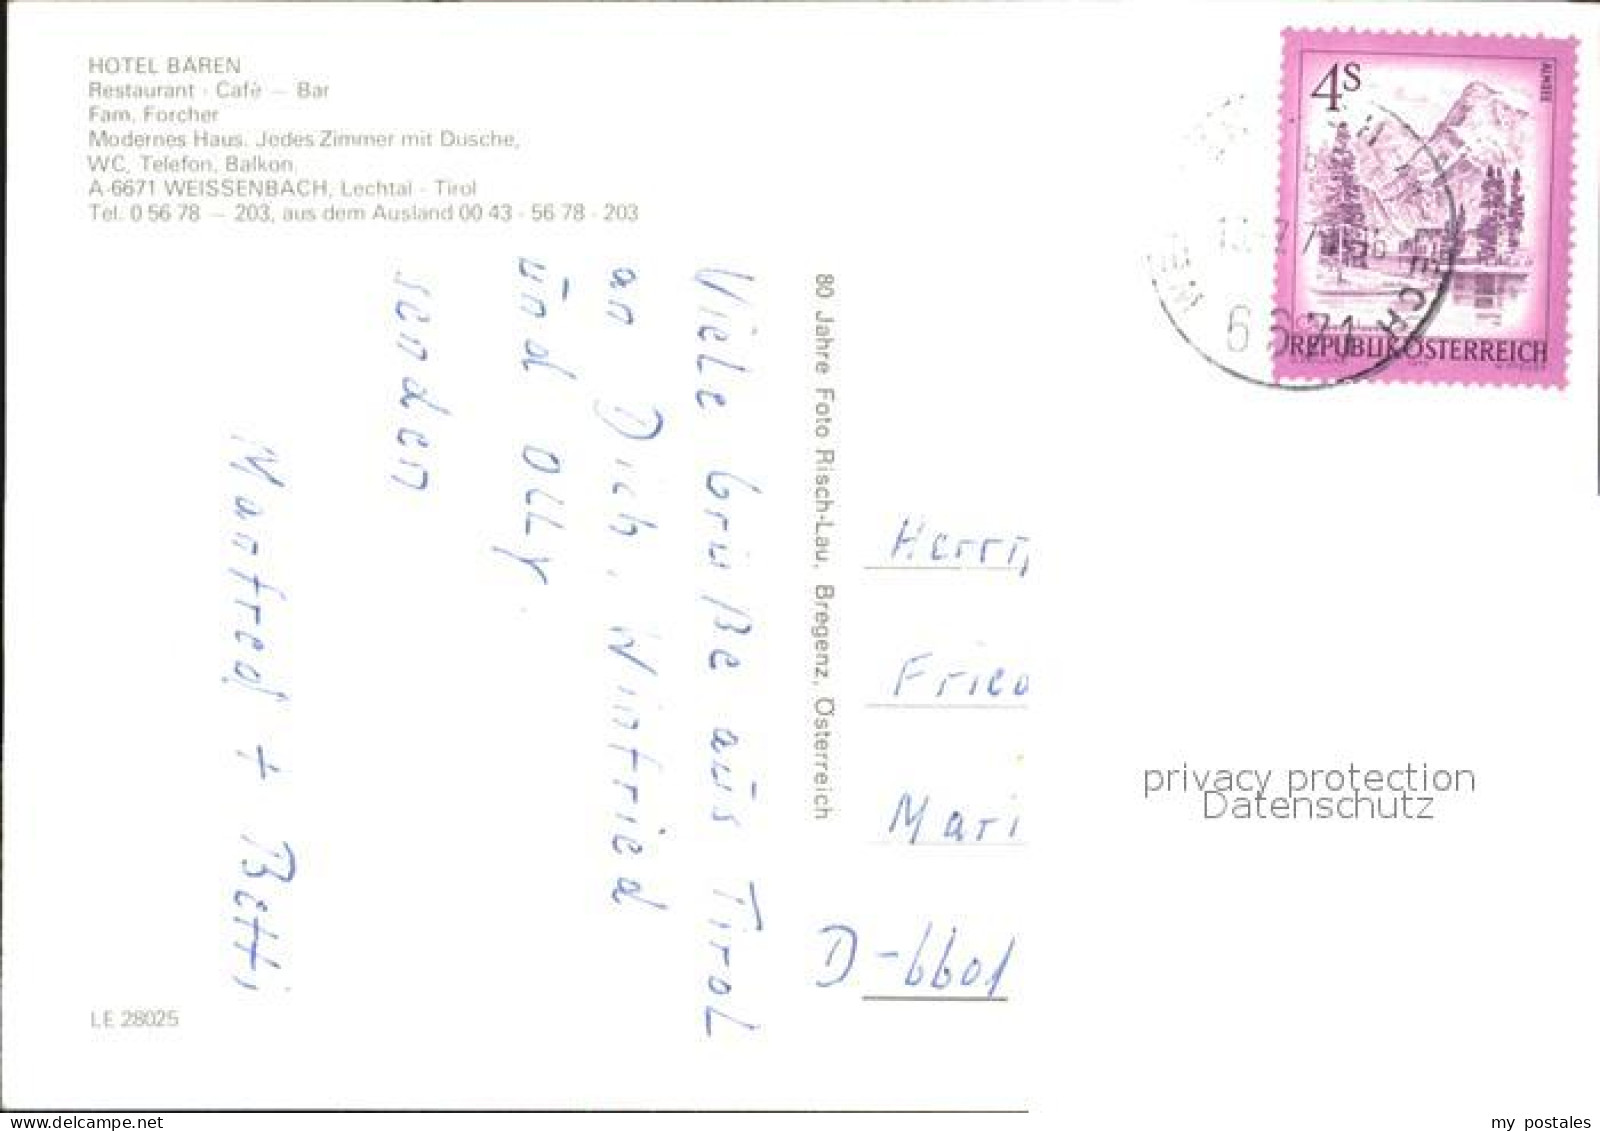 HOTEL BÄREN
Restaurant · Café — Bar
Fam. Forcher
Modernes Haus. Jedes Zimmer mit Dusche,
WC, Telefon, Balkon.
A-6671 WEISSENBACH, Lechtal - Tirol
Tel. 0 56 78 — 203, aus dem Ausland 00 43 - 56 78 - 203
Viele Grüße aus Tirol
an Dich, Winfried
und Olly.
senden
Manfred + Betti
LE 28025
80 Jahre Foto Risch-Lau, Bregenz, Österreich
4S
ALMSEE
REPUBLIK ÖSTERREICH
6671
Herrn
Fried
Mari
D-6601
privacy protection
Datenschutz
www.delcampe.net
my_postales